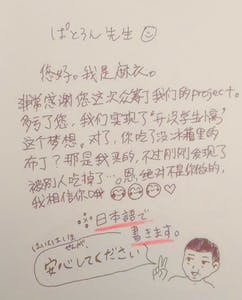 ぱとろん先生
您好。我是麻衣。
非常感谢您这次众筹了我们的project。
多亏了您，我们实现了“开设学生sns”
这个梦想。对了，你吃了没冰箱里的
布丁？那是我买的，不过刚刚发现了
被别人吃掉了…。恩，绝对不是你做的，
我相信你哦
日本語で
書きます。
はいしはしま
せんが、
安心してください